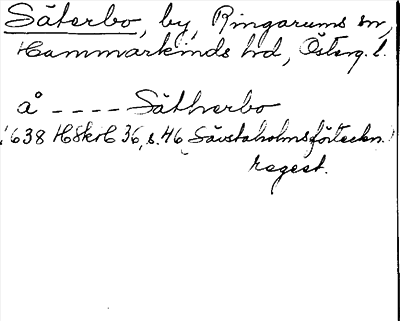 Säterbo, by, Ringarums sn,
Hammarkinds hd, Österg. l.
å - - - - Sätherbo
1638 HSkrH 36, s. 46 (Sävstaholmsförteckn.)
regest.